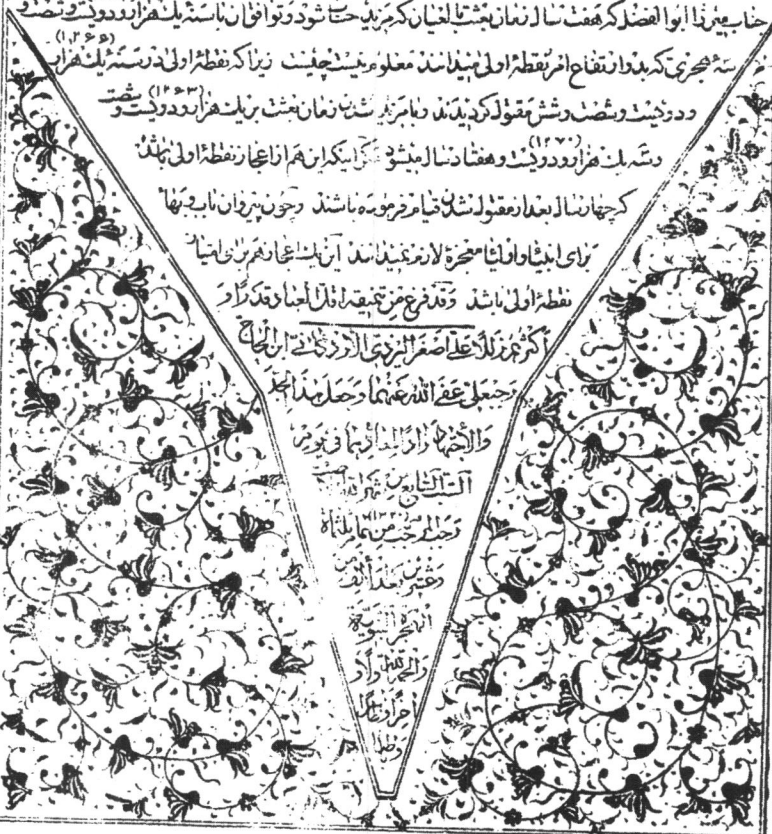 جناب میرزا ابوالفضل که هفت سال زمان بعثت بالغیان که مزید حساب شود و توافق آن با سنه یک هزار و دویست و شصت و
سهٔ هجری که بدو ارتفاع امر نقطهٔ اولی میدانند معلوم نیست چیست زیرا که نقطهٔ اولی در سنهٔ یک هزار (۱۲۶۶)
و دویست و شصت و شش مقتول گردیدند و با مزید شدن زمان بعثت بر یک هزار و دویست و شصت (۱۲۶۳)
و سه یک هزار و دویست و هفتاد سال میشود (۱۲۷۰) مگر اینکه این هم از اعجاز نقطهٔ اولی باشد
که چهار سال بعد از مقتول شدن قیام فرموده باشند و چون پیروان باب و بها
برای انبیا و اولیا معجزهٔ لازم نمیدانند این یک اعجاز هم برای امتیاز
نقطهٔ اولی باشد و قد فرغ من تنمیقه اقل العباد قدراً و
اکثرهم زللاً علی اصغر الیزدی الاردکانی ابن الحاج
رجبعلی عفی الله عنهما و جعل هذا
والأجتهاد زاداً لمعادهما فی یوم
السبت السابع من شهر الله
رجب المرجب من ثلثمأة
وعشرین بعد ألف من
الهجرة النبویة
والحمد لله اولاً و
آخراً و ظاهراً